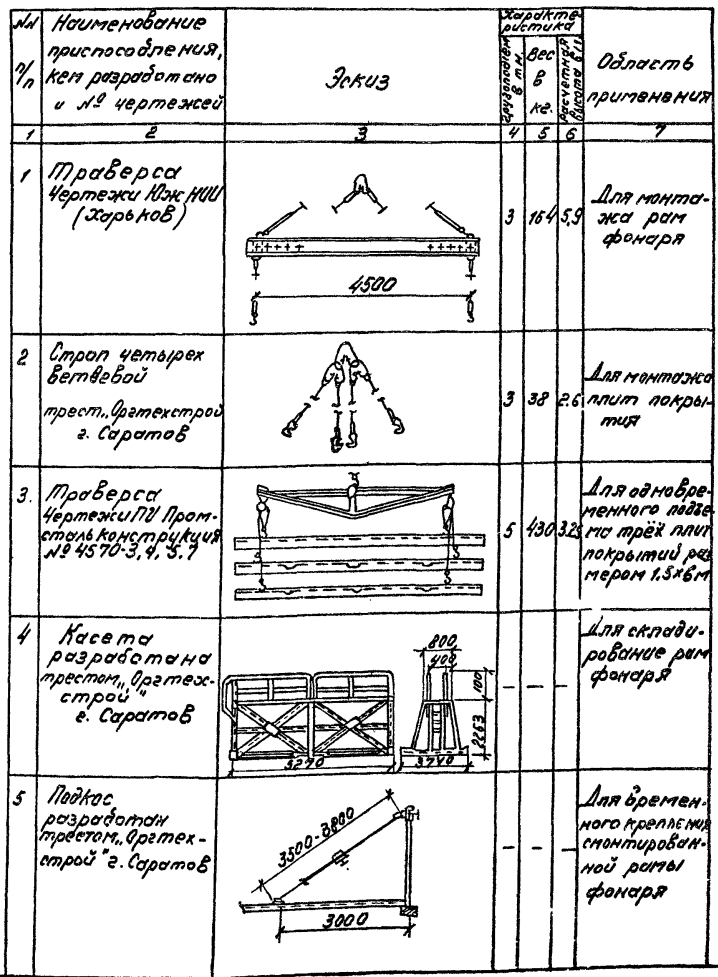 NN
п/п
Наименование
приспособления,
кем разработано
и № чертежей
Эскиз
Характе-
ристика
Грузоподъем
в тн.
Вес
в
кг.
Расчетная
высота в м
Область
применения
1
2
3
4
5
6
7
1
Траверса
Чертежи Юж НИИ
(Харьков)
4500
3
164
5,9
Для монта-
жа рам
фонаря
2
Строп четырех
ветвевой
трест „Оргтехстрой
г. Саратов
3
38
2.6
Для монтажа
плит покры-
тия
3.
Траверса
Чертежи ПИ Пром-
стальконструкция
№ 4570-3, 4, 5, 7
5
430
3.25
Для одновре-
менного подъе-
ма трёх плит
покрытий раз
мером 1.5х6м
4
Касета
разработана
трестом „Оргтех-
строй"
г. Саратов
5270
800
400
100
2263
3740
–
–
–
Для склади-
рование рам
фонаря
5
Подкос
разработан
трестом „Оргтех-
строй" г. Саратов
3500-3800
3000
–
–
–
Для времен-
ного крепления
смонтирован-
ной рамы
фонаря